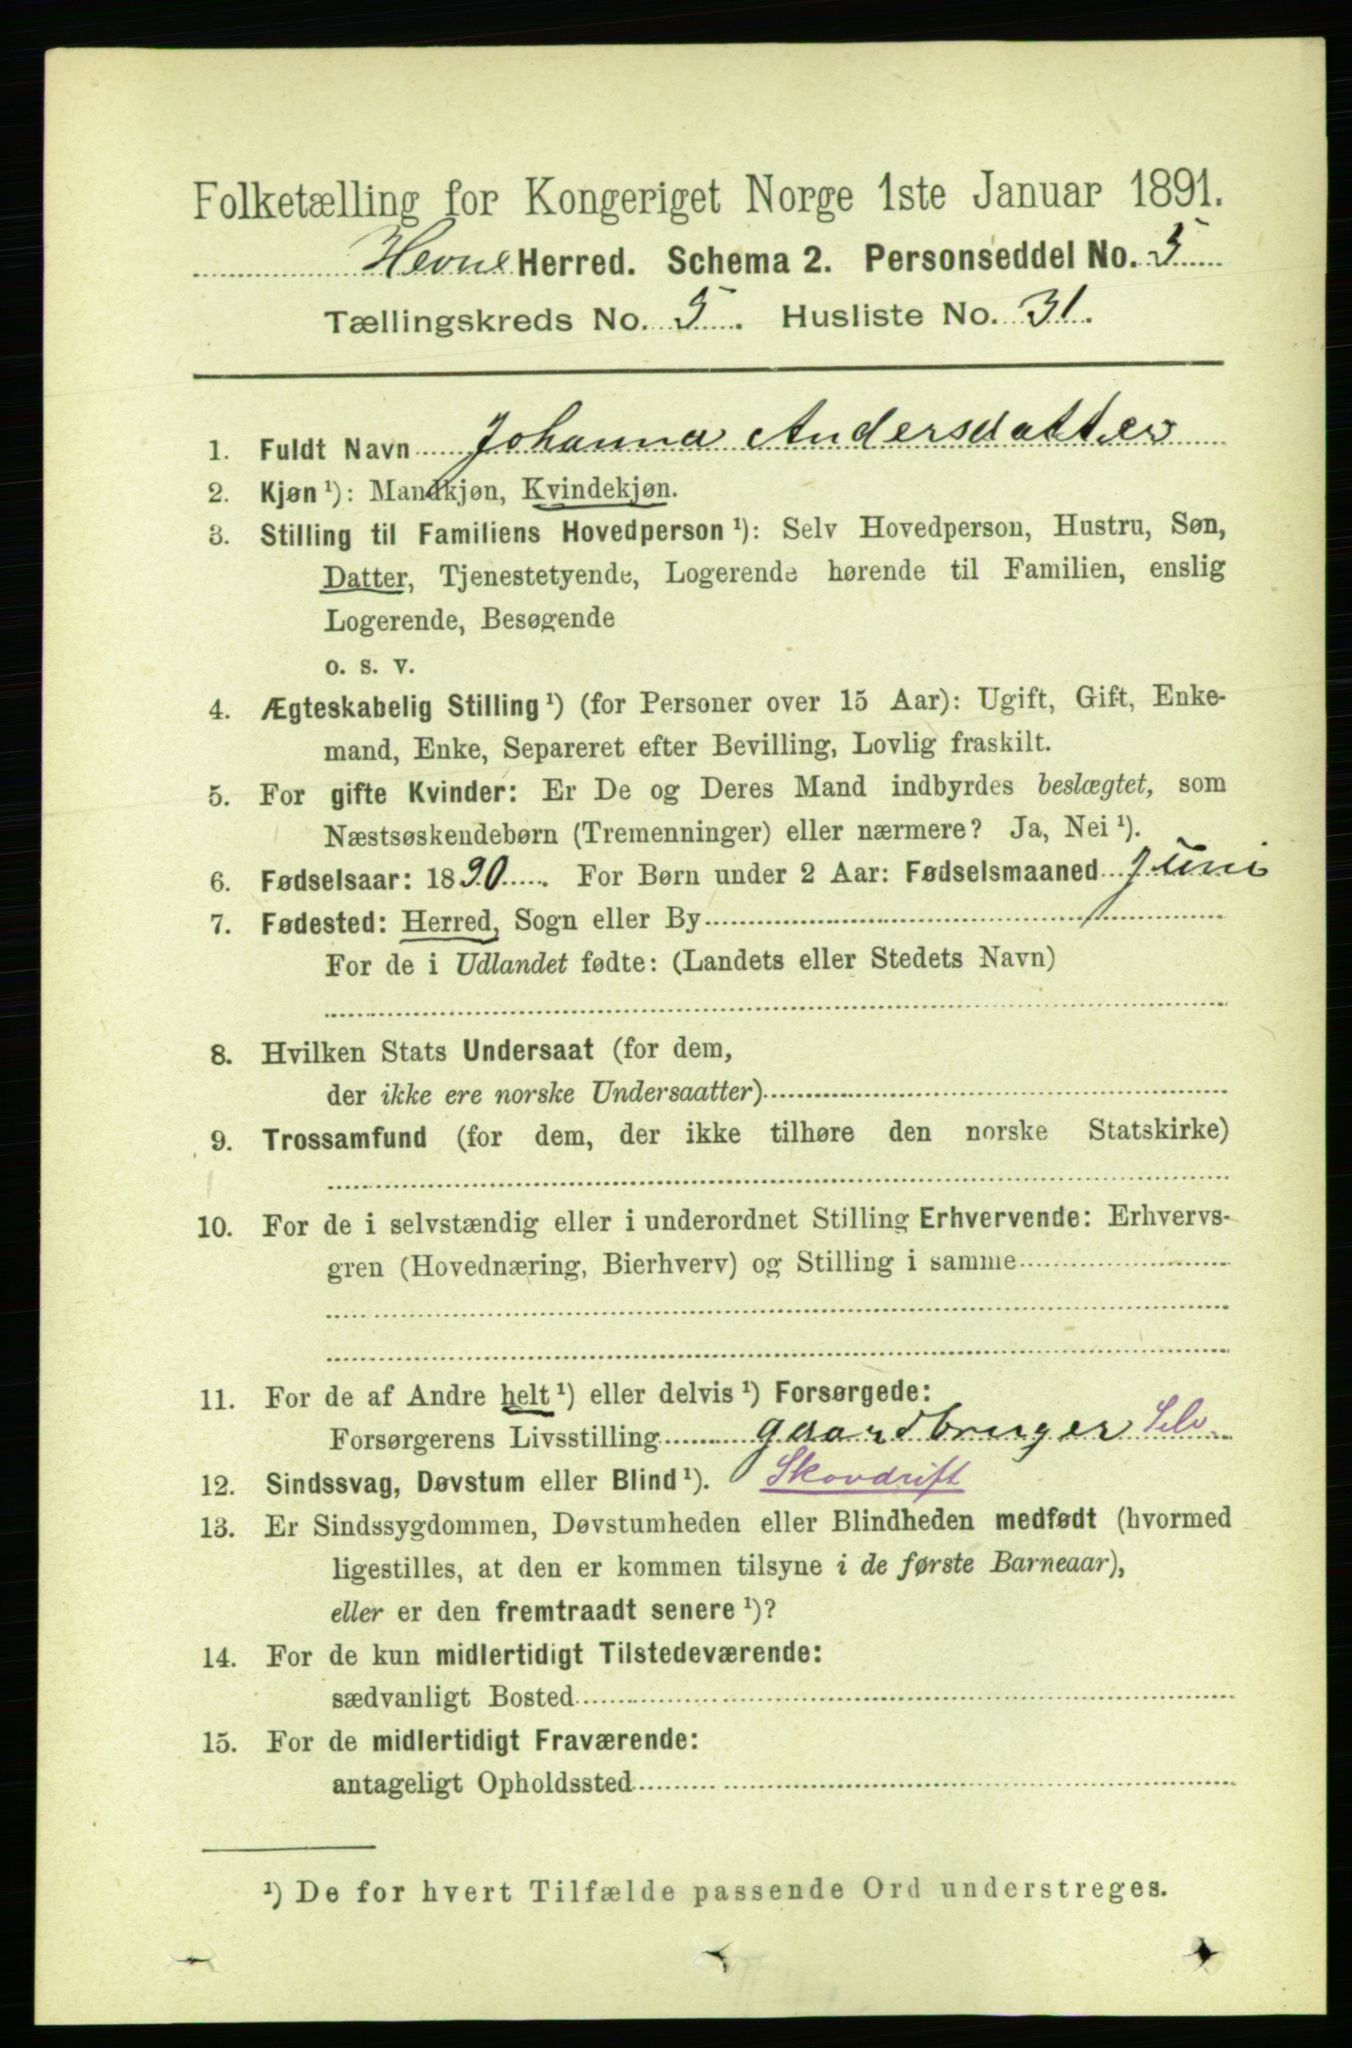 Folketælling for Kongeriget Norge 1ste Januar 1891.
Hevne Herred. Schema 2. Personseddel No. 5
Tællingskreds No. 5. Husliste No. 31.
1. Fuldt Navn Johanna Andersdatter
2. Kjøn ¹): Mandkjøn, Kvindekjøn.
3. Stilling til Familiens Hovedperson ¹): Selv Hovedperson, Hustru, Søn,
Datter, Tjenestetyende, Logerende hørende til Familien, enslig
Logerende, Besøgende
o. s. v.
4. Ægteskabelig Stilling ¹) (for Personer over 15 Aar): Ugift, Gift, Enke-
mand, Enke, Separeret efter Bevilling, Lovlig fraskilt.
5. For gifte Kvinder: Er De og Deres Mand indbyrdes beslægtet, som
Næstsøskendebørn (Tremenninger) eller nærmere? Ja, Nei ¹).
6. Fødselsaar: 1890. For Børn under 2 Aar: Fødselsmaaned Juni
7. Fødested: Herred, Sogn eller By
For de i Udlandet fødte: (Landets eller Stedets Navn)
8. Hvilken Stats Undersaat (for dem,
der ikke ere norske Undersaatter)
9. Trossamfund (for dem, der ikke tilhøre den norske Statskirke)
10. For de i selvstændig eller i underordnet Stilling Erhvervende: Erhvervs-
gren (Hovednæring, Bierhverv) og Stilling i samme
11. For de af Andre helt ¹) eller delvis ¹) Forsørgede:
Forsørgerens Livsstilling gaardbruger Selv
12. Sindssvag, Døvstum eller Blind ¹). Skovdrift
13. Er Sindssygdommen, Døvstumheden eller Blindheden medfødt (hvormed
ligestilles, at den er kommen tilsyne i de første Barneaar),
eller er den fremtraadt senere ¹)?
14. For de kun midlertidigt Tilstedeværende:
sædvanligt Bosted
15. For de midlertidigt Fraværende:
antageligt Opholdssted
¹) De for hvert Tilfælde passende Ord understreges.